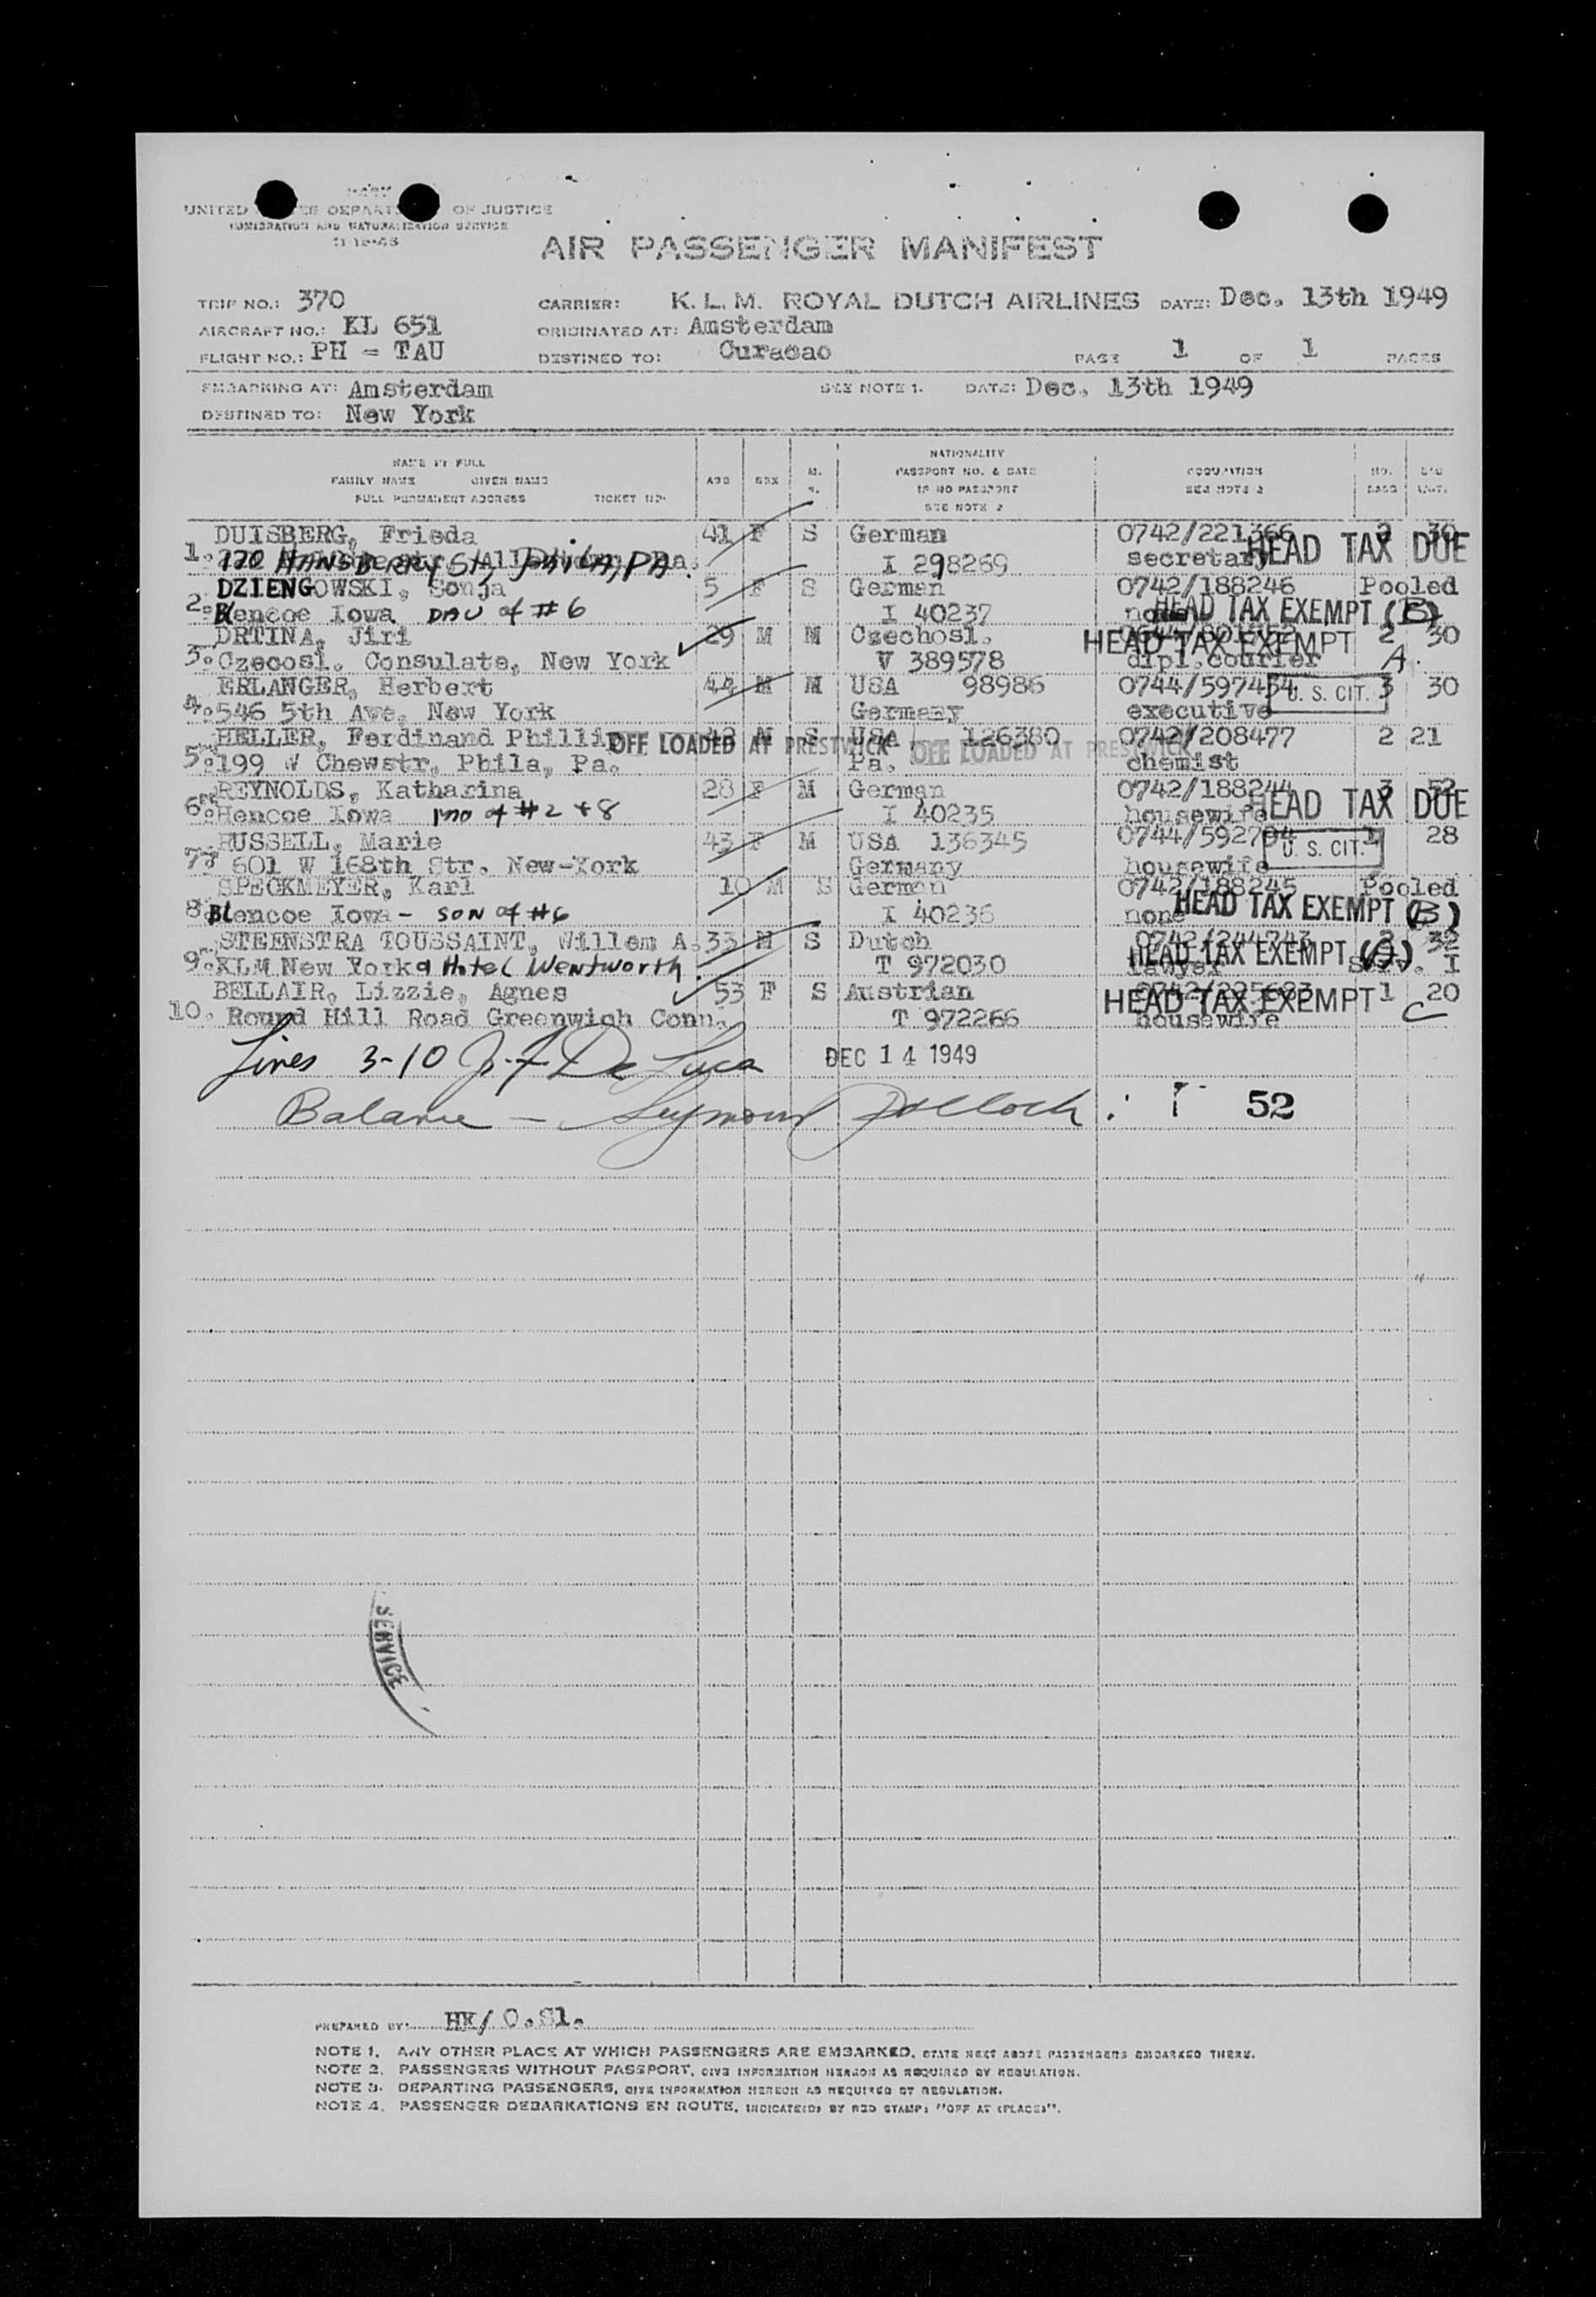 UNITED DEPART OF JUSTICE
IMMIGRATION AND NATURALIZATION SERVICE
AIR PASSENGER MANIFEST
TRIP NO.: 370 CARRIER: K. L. M. ROYAL DUTCH AIRLINES DATE: Dec. 13th 1949
AIRCRAFT NO.: KL 651 ORIGINATED AT: Amsterdam
FLIGHT NO.: PH = TAU DESTINED TO: Curacao PAGE 1 OF 1 PAGES
EMBARKING AT: Amsterdam SEE NOTE 1. DATE: Dec. 13th 1949
DESTINED TO: New York
NAME IN FULL
FAMILY NAME GIVEN NAME
FULL PERMANENT ADDRESS TICKET NO.
AGE SEX M. S.
NATIONALITY
PASSPORT NO. & DATE
IF NO PASSPORT
SEE NOTE 2
OCCUPATION
SEE NOTE 3
NO. BAGS
DUISBERG, Frieda 41 F S German 0742/221366 2 30
1. 170 HANSBERRY St, PHILA, PA. I 298269 secretary HEAD TAX DUE
DZIENGOWSKI, Sonja 5 F S German 0742/188246 Pooled
2. Blencoe Iowa DAU of #6 I 40237 none HEAD TAX EXEMPT (B)
DRTINA, Jiri 29 M M Czechosl. HEAD TAX EXEMPT 2 30
3. Czecosl. Consulate, New York V 389578 dipl.courier A.
ERLANGER, Herbert 44 M M USA 98986 0744/597434 U. S. CIT. 3 30
4. 546 5th Awe. New York Germany executive
HELLER, Ferdinand Phillip OFF LOADED AT PRESTWICK USA 126380 0742/208477 2 21
5. 199 W Chewstr, Phila, Pa. Pa. OFF LOADED AT PRESTWICK chemist
REYNOLDS, Katharina 28 F M German 0742/188244 3 52
6. Hencoe Iowa mo of #2 + 8 I 40235 housewife HEAD TAX DUE
RUSSELL, Marie 43 F M USA 136345 0744/592794 U. S. CIT. 1 28
7. 601 W 168th Str. New-York Germany housewife
SPECKMEYER, Karl 10 M S German 0742/188245 Pooled
8. Blencoe Iowa - SON of #6 I 40236 none HEAD TAX EXEMPT (B)
STEENSTRA TOUSSAINT, Willem A. 33 M S Dutch 0742/244743 2 32
9. KLM New York Hotel Wentworth. T 972030 lawyer HEAD TAX EXEMPT Serv. I
BELLAIR, Lizzie, Agnes 53 F S Austrian HEAD TAX EXEMPT 1 20
10. Round Hill Road Greenwich Conn. T 972266 housewife C
Lines 3-10 J. F De Luca DEC 14 1949
Balance - Seymour Pollock. 52
SERVICE
PREPARED BY: HK/ O.Sl.
NOTE 1. ANY OTHER PLACE AT WHICH PASSENGERS ARE EMBARKED, STATE NEXT ABOVE PASSENGERS EMBARKED THERE.
NOTE 2. PASSENGERS WITHOUT PASSPORT, GIVE INFORMATION HEREON AS REQUIRED BY REGULATION.
NOTE 3. DEPARTING PASSENGERS, GIVE INFORMATION HEREON AS REQUIRED BY REGULATION.
NOTE 4. PASSENGER DEBARKATIONS EN ROUTE, INDICATE(D) BY RED STAMP: "OFF AT (PLACE)".